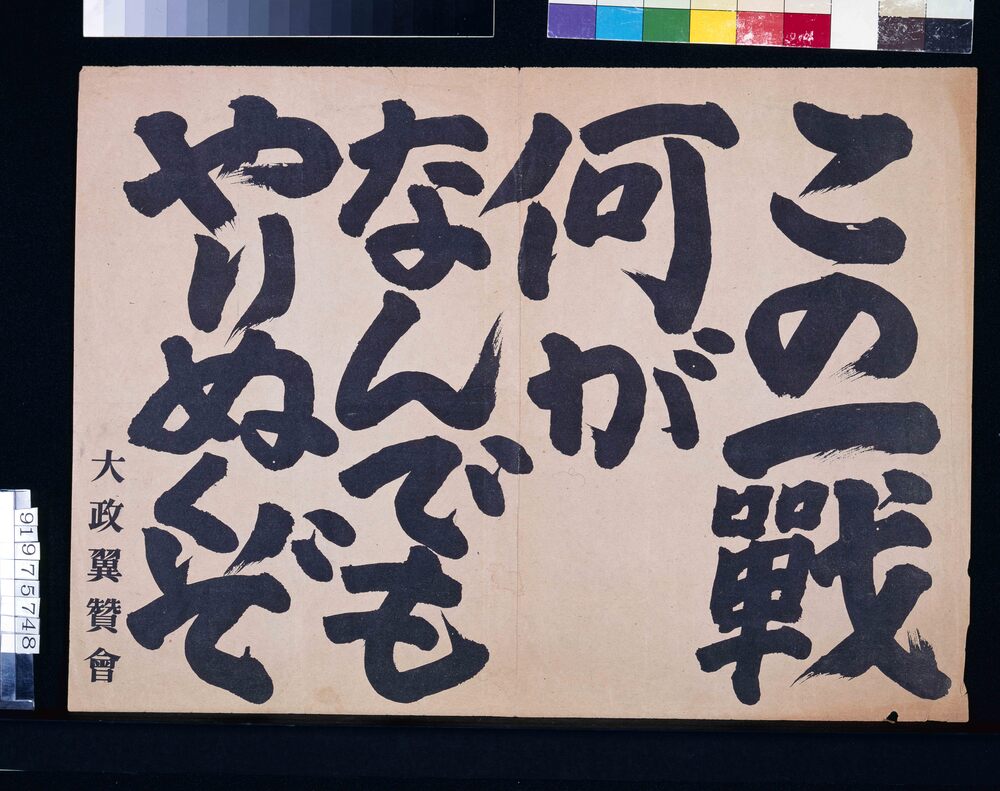 この一戰
何が
なんでも
やりぬくぞ
大政翼贊會
91975748